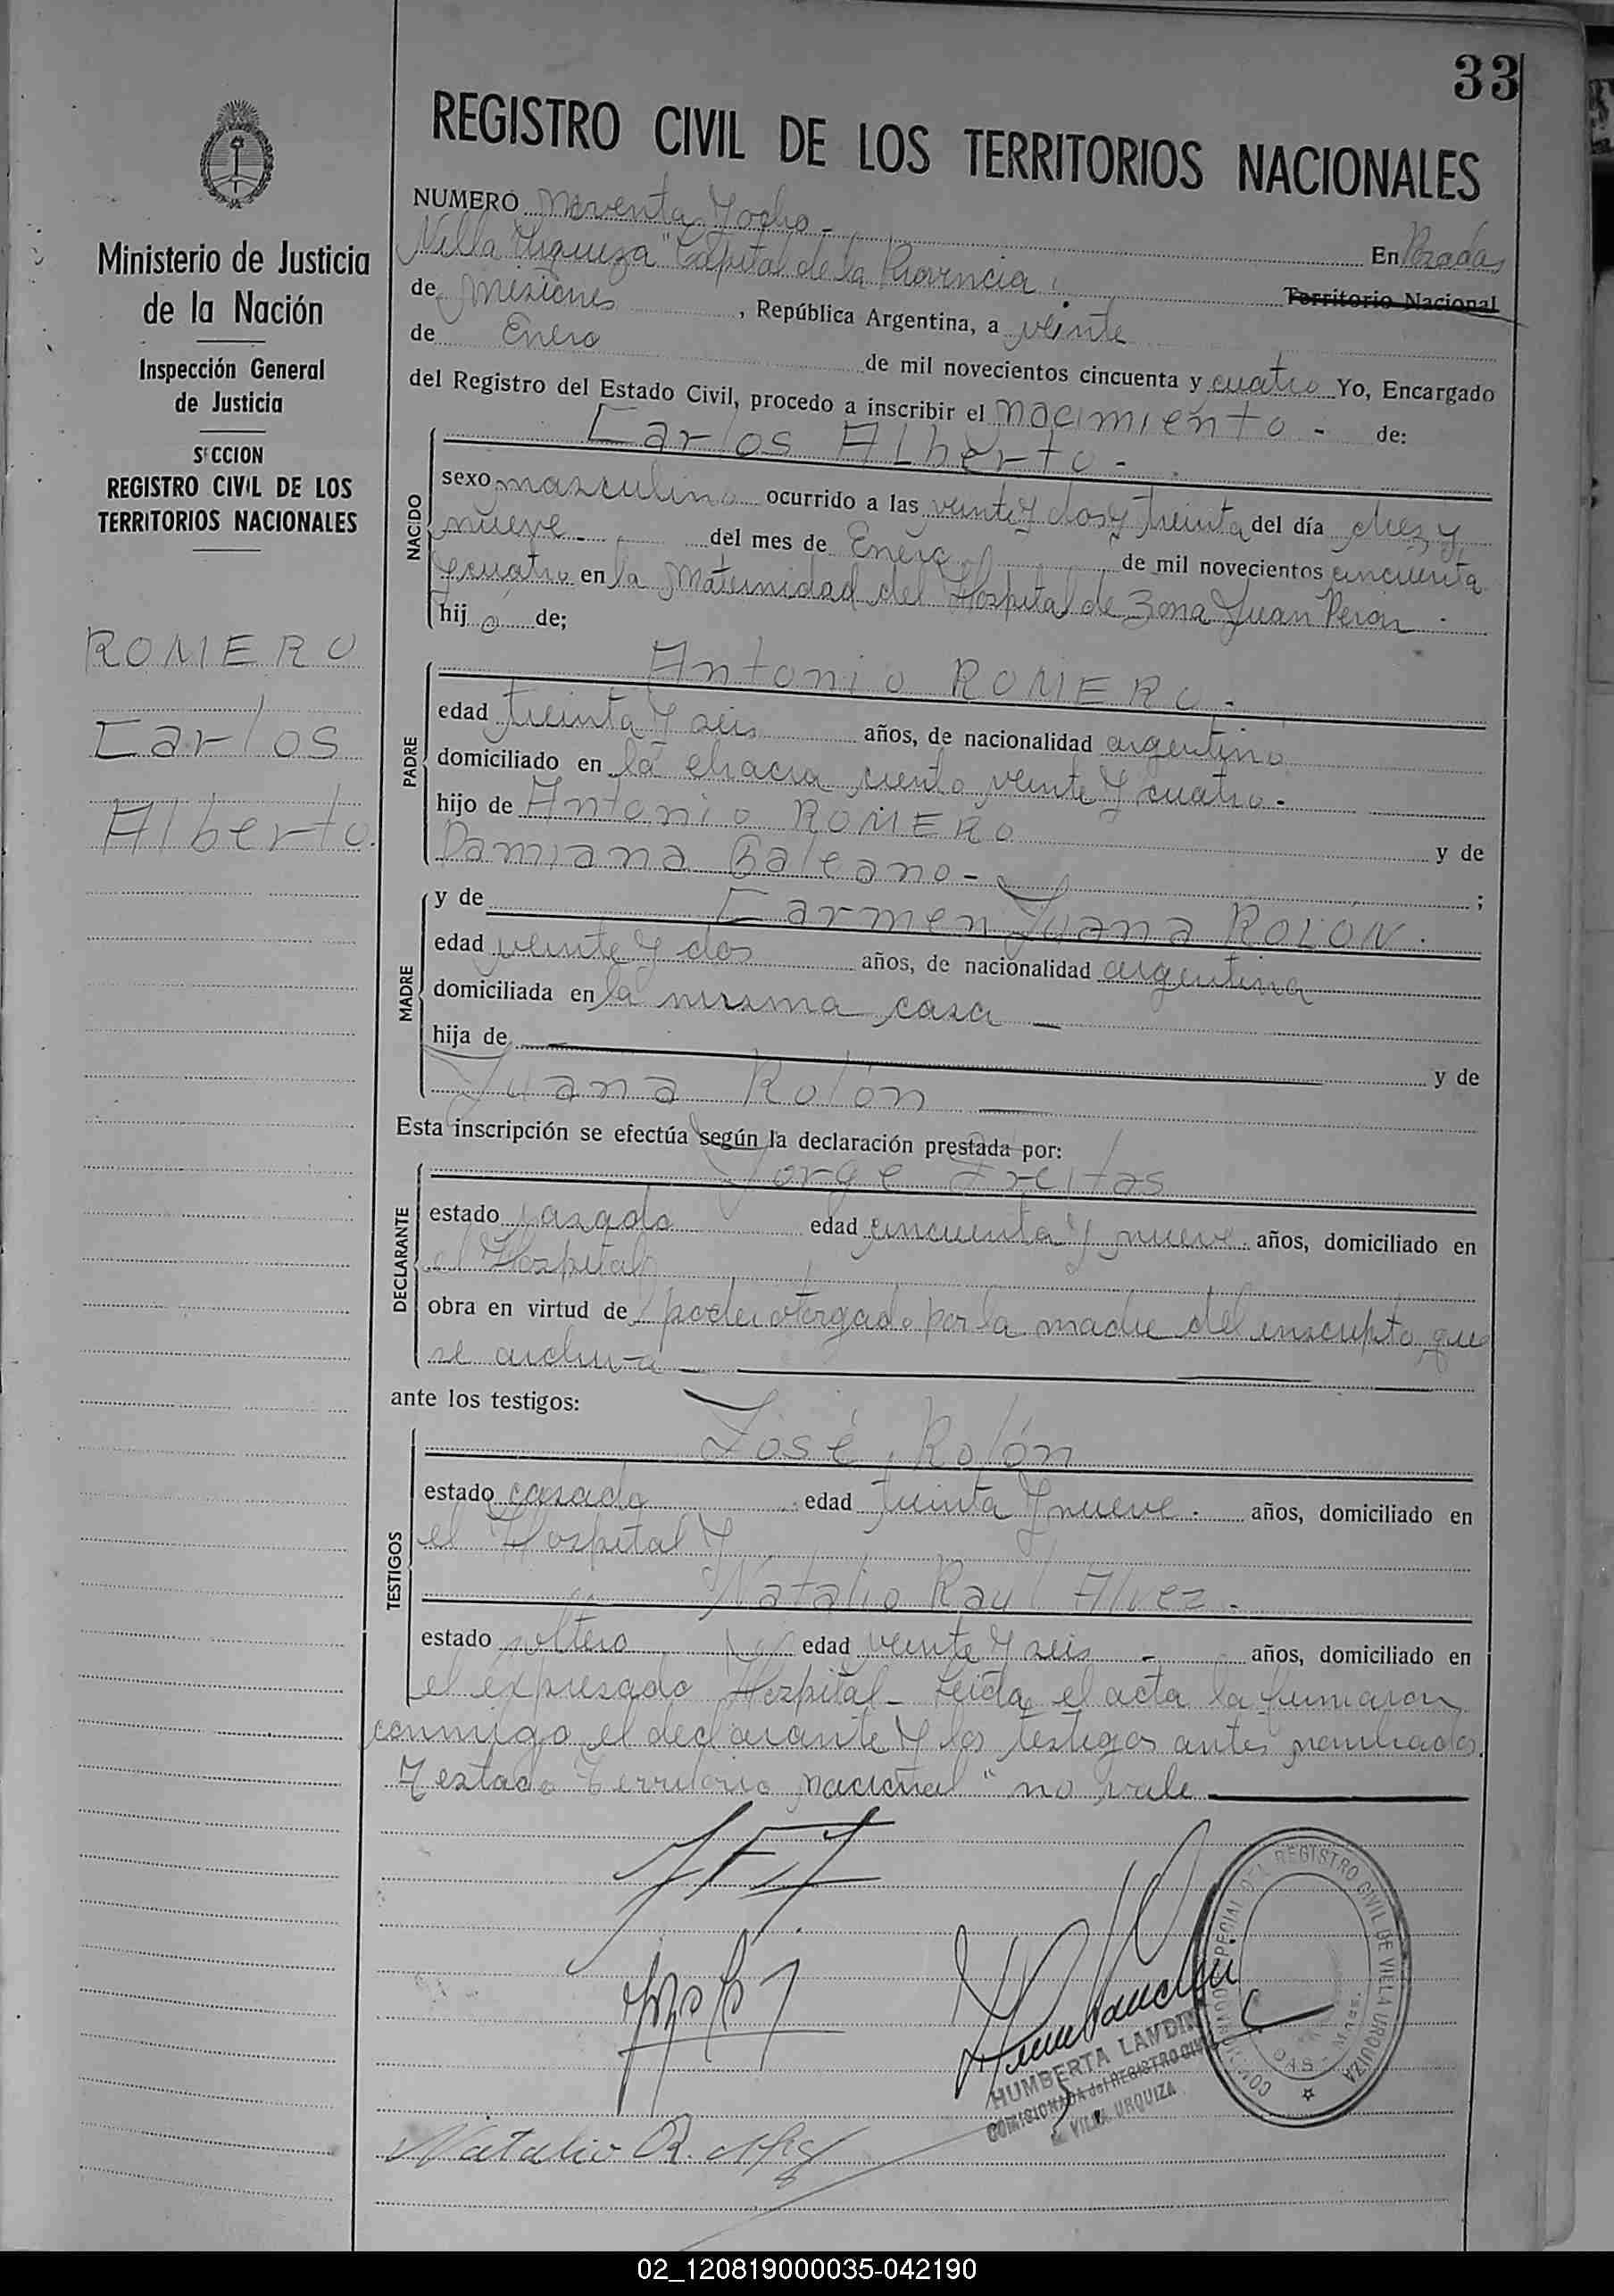 33
REGISTRO CIVIL DE LOS TERRITORIOS NACIONALES
Ministerio de Justicia
de la Nación
Inspección General
de Justicia
SECCION
REGISTRO CIVIL DE LOS
TERRITORIOS NACIONALES
ROMERO
Carlos
Alberto.
NUMERO Noventa y ocho - En Posadas
"Villa Urquiza" Capital de la Provincia Territorio Nacional
de Misiones, República Argentina, a veinte
de Enero de mil novecientos cincuenta y cuatro Yo, Encargado
del Registro del Estado Civil, procedo a inscribir el nacimiento - de:
NACIDO
Carlos Alberto -
sexo masculino ocurrido a las veinte y dos y treinta del día diez y
nueve - del mes de Enero de mil novecientos cincuenta
y cuatro en la Maternidad del Hospital de Zona Juan Peron -
hijo de;
PADRE
Antonio ROMERO -
edad treinta y seis años, de nacionalidad argentino
domiciliado en la chacra ciento veinte y cuatro -
hijo de Antonio ROMERO y de
Damiana Galeano - ;
MADRE
y de Carmen Juana ROLÓN.
edad veinte y dos años, de nacionalidad argentina
domiciliada en la misma casa —
hija de — y de
Juana Rolón —
Esta inscripción se efectúa según la declaración prestada por:
DECLARANTE
Jorge Freitas
estado casado edad cincuenta y nueve años, domiciliado en
el Hospital
obra en virtud de poder otorgado por la madre del inscripto que
se archiva —
ante los testigos:
TESTIGOS
José Rolón
estado casado edad treinta y nueve. años, domiciliado en
el Hospital y
Natalio Raul Alvez -
estado soltero edad veinte y seis - años, domiciliado en
el expresado Hospital - Leida el acta la firmaron
conmigo el declarante y los testigos antes nombrados.
Y estado "Territorio nacional" no vale
Natalio R.
HUMBERTA LANDIN
COMISIONADA del REGISTRO CIVIL
VILLA URQUIZA
ESPECIAL DEL REGISTRO CIVIL DE VILLA URQUIZA
02_120819000035-042190